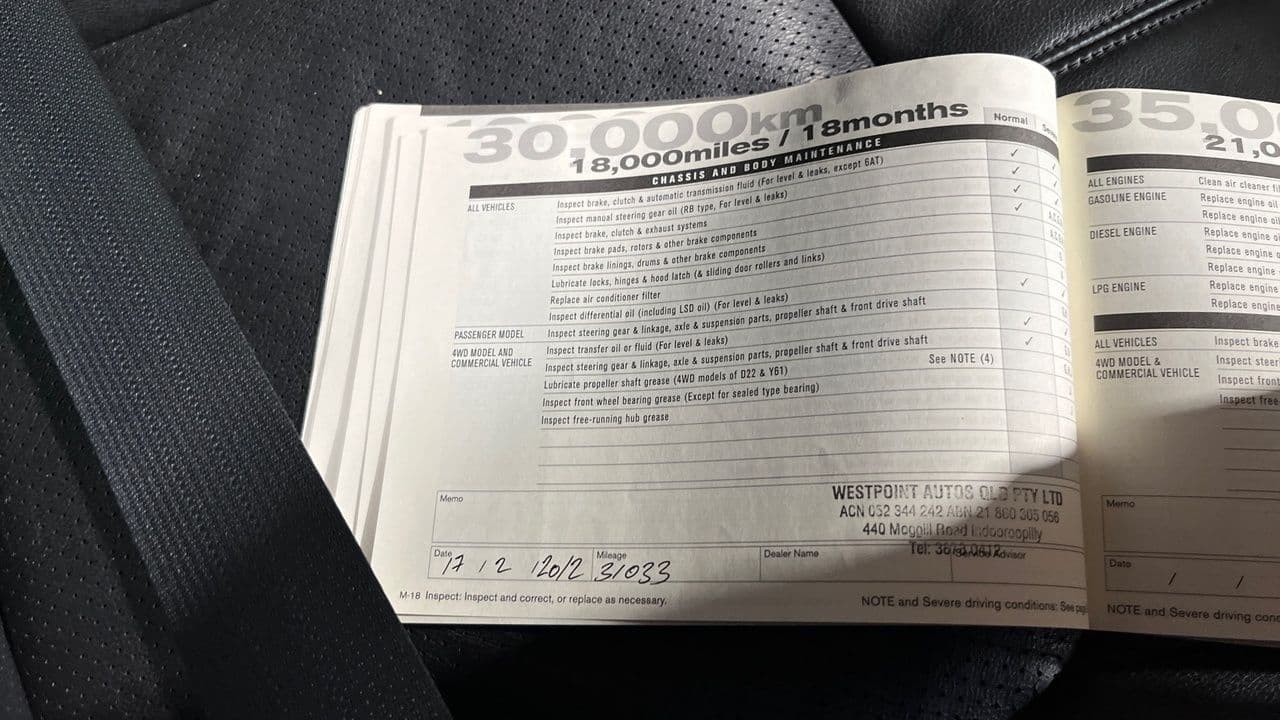 30,000km
18,000miles / 18months
Normal
CHASSIS AND BODY MAINTENANCE
ALL VEHICLES
Inspect brake, clutch & automatic transmission fluid (For level & leaks, except 6AT) ✓
Inspect manual steering gear oil (RB type, For level & leaks) ✓
Inspect brake, clutch & exhaust systems ✓
Inspect brake pads, rotors & other brake components ✓
Inspect brake linings, drums & other brake components
Lubricate locks, hinges & hood latch (& sliding door rollers and links)
Replace air conditioner filter
Inspect differential oil (including LSD oil) (For level & leaks) ✓
PASSENGER MODEL
Inspect steering gear & linkage, axle & suspension parts, propeller shaft & front drive shaft
4WD MODEL AND
COMMERCIAL VEHICLE
Inspect transfer oil or fluid (For level & leaks) ✓
Inspect steering gear & linkage, axle & suspension parts, propeller shaft & front drive shaft ✓
Lubricate propeller shaft grease (4WD models of D22 & Y61) See NOTE (4)
Inspect front wheel bearing grease (Except for sealed type bearing)
Inspect free-running hub grease
Memo
WESTPOINT AUTOS QLD PTY LTD
ACN 052 344 242 ABN 21 860 305 056
440 Moggill Road Indooroopilly
Tel:
Date 17 / 2 /2012
Mileage 31033
Dealer Name
Service Advisor
M-18 Inspect: Inspect and correct, or replace as necessary.
NOTE and Severe driving conditions: See
35,0
21,0
ALL ENGINES
Clean air cleaner
GASOLINE ENGINE
Replace engine oil
Replace engine
DIESEL ENGINE
Replace engine
Replace engine
Replace engine
LPG ENGINE
Replace engine
Replace engine
ALL VEHICLES
Inspect brake
4WD MODEL &
COMMERCIAL VEHICLE
Inspect
Inspect front
Inspect
Memo
Date / /
NOTE and Severe driving